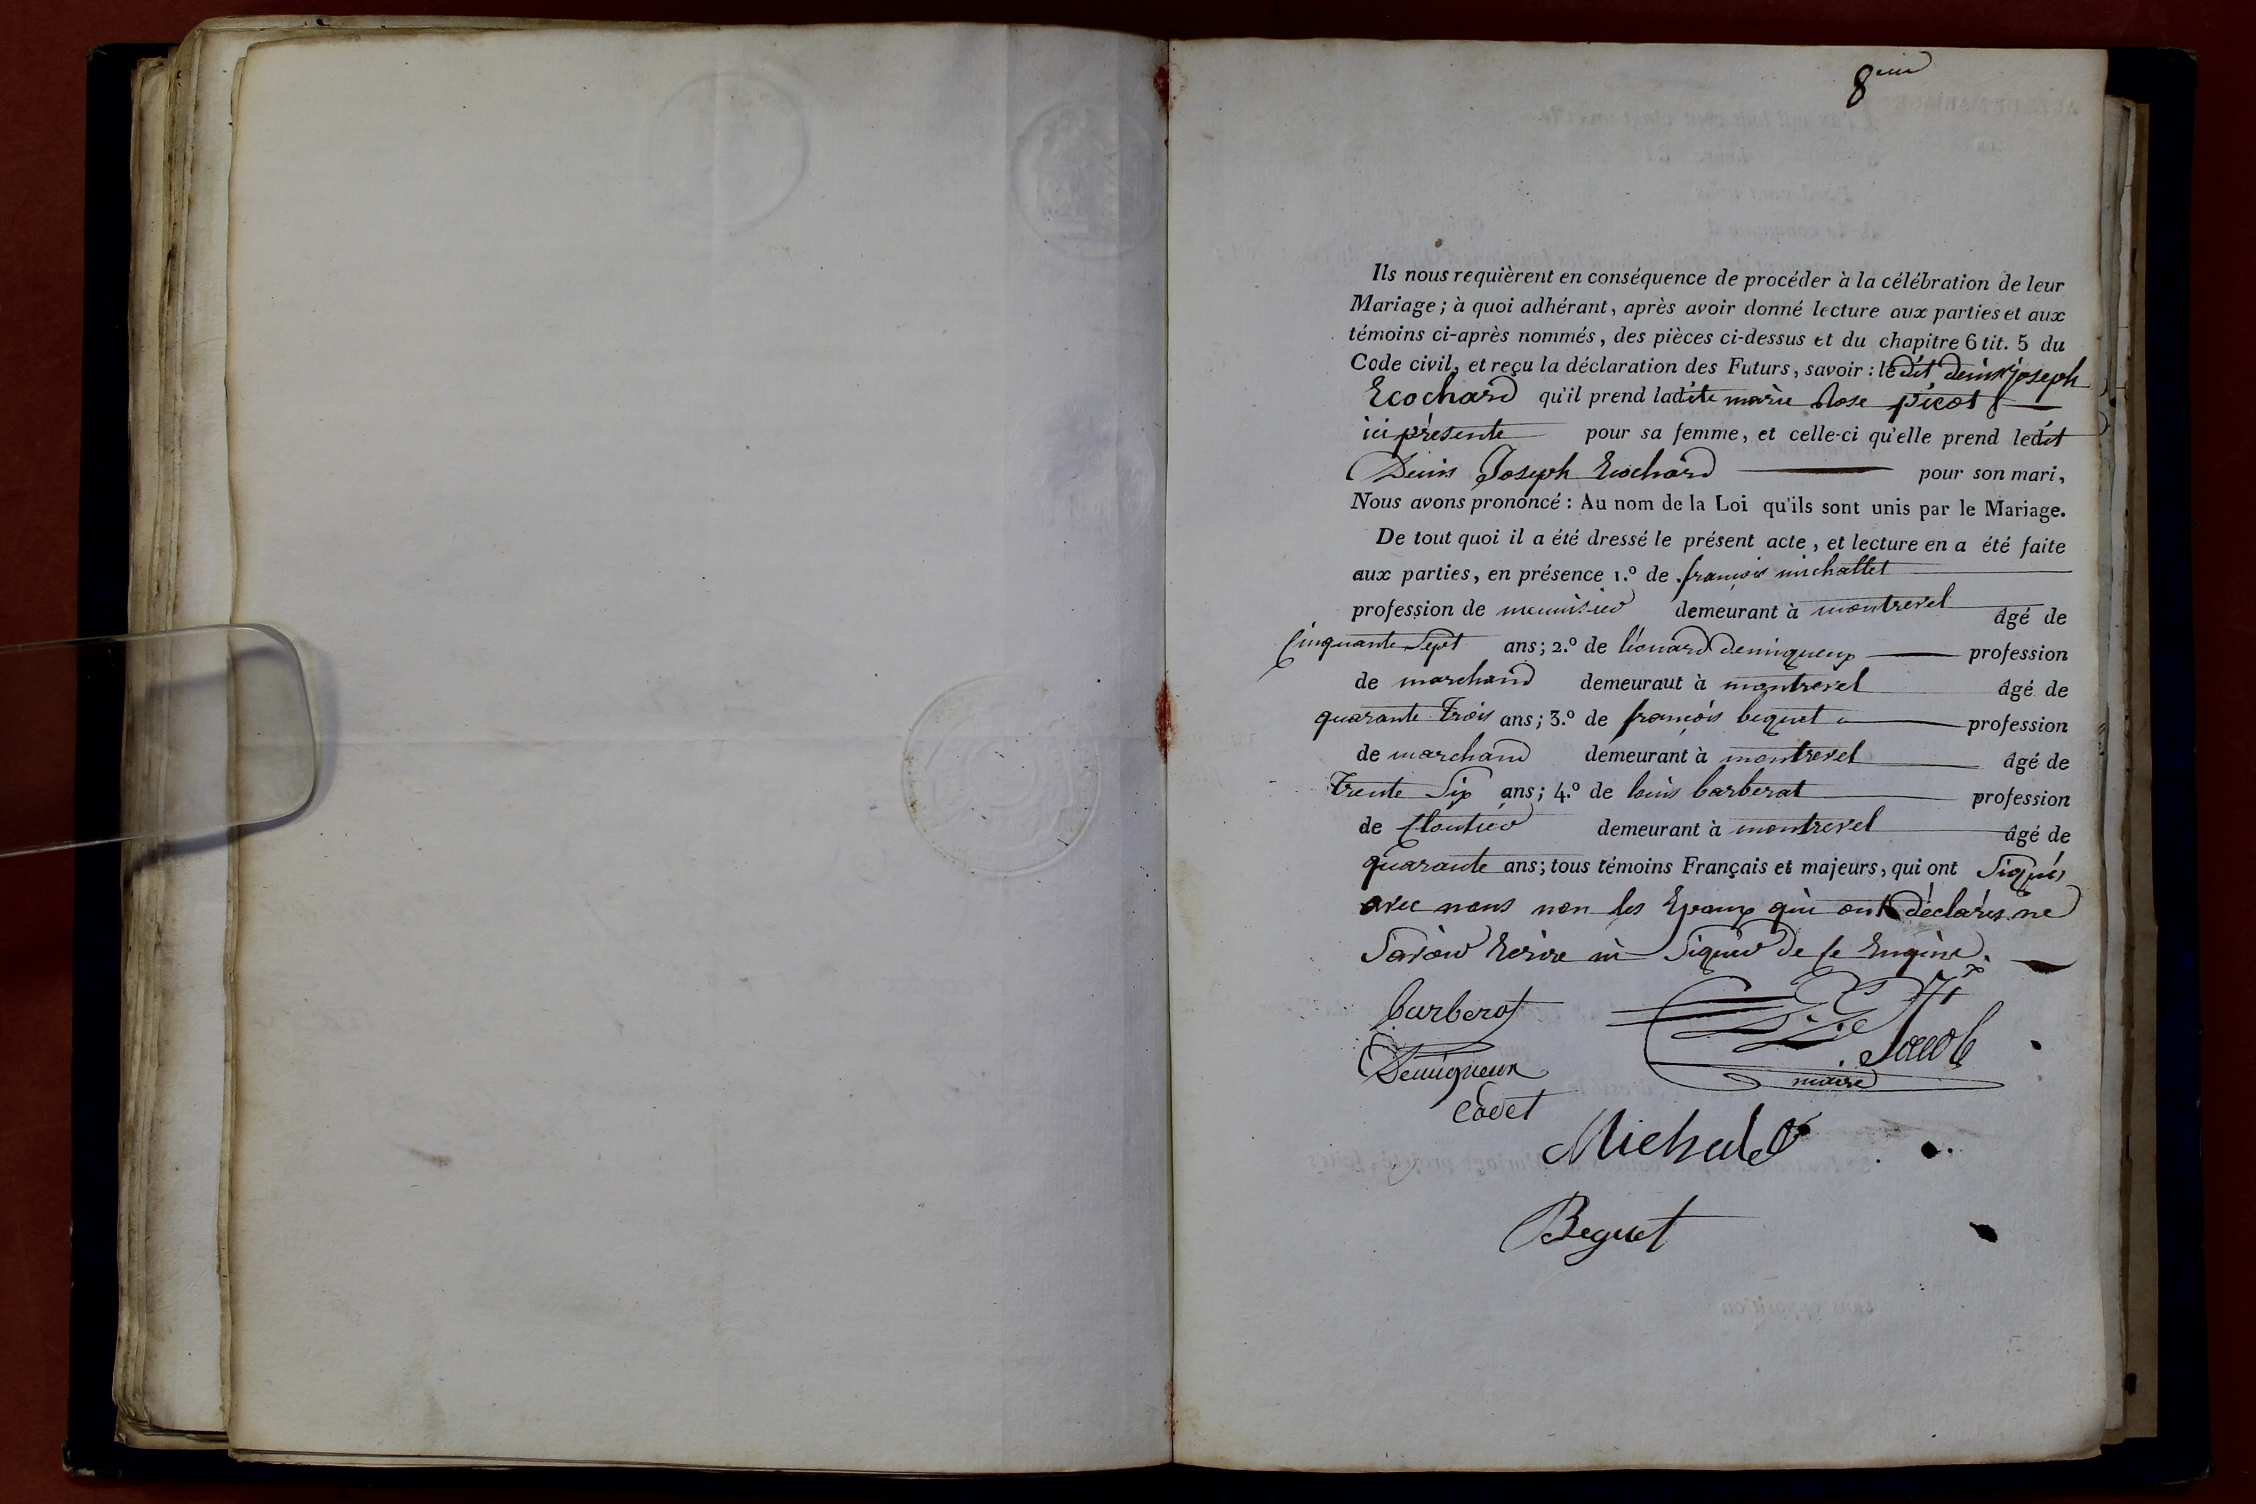 8eme
Ils nous requièrent en conséquence de procéder à la célébration de leur
Mariage ; à quoi adhérant, après avoir donné lecture aux parties et aux
témoins ci-après nommés, des pièces ci-dessus et du chapitre 6 tit. 5 du
Code civil, et reçu la déclaration des Futurs, savoir : ledit denis joseph
Ecochard qu'il prend ladite marie Rose picot
ici présente pour sa femme, et celle-ci qu'elle prend ledit
Denis Joseph Ecochard pour son mari,
Nous avons prononcé : Au nom de la Loi qu'ils sont unis par le Mariage.
De tout quoi il a été dressé le présent acte, et lecture en a été faite
aux parties, en présence 1.º de françois michallet
profession de menuisier demeurant à montrevel âgé de
Cinquante Sept ans ; 2.º de léonard demiqueux profession
de marchand demeuraut à montrevel âgé de
quarante trois ans ; 3.º de françois beguet profession
de marchand demeurant à montrevel âgé de
Trente Six ans ; 4.º de louis barberat profession
de Cloutier demeurant à montrevel âgé de
quarante ans ; tous témoins Français et majeurs, qui ont Signés
avec nous non les Epoux qui ont déclarés ne
Savoir Ecrire ni Signer de ce Enquis.
barberot
Jacob
maire
Demiqueux
Cadet
Michalet
Beguet